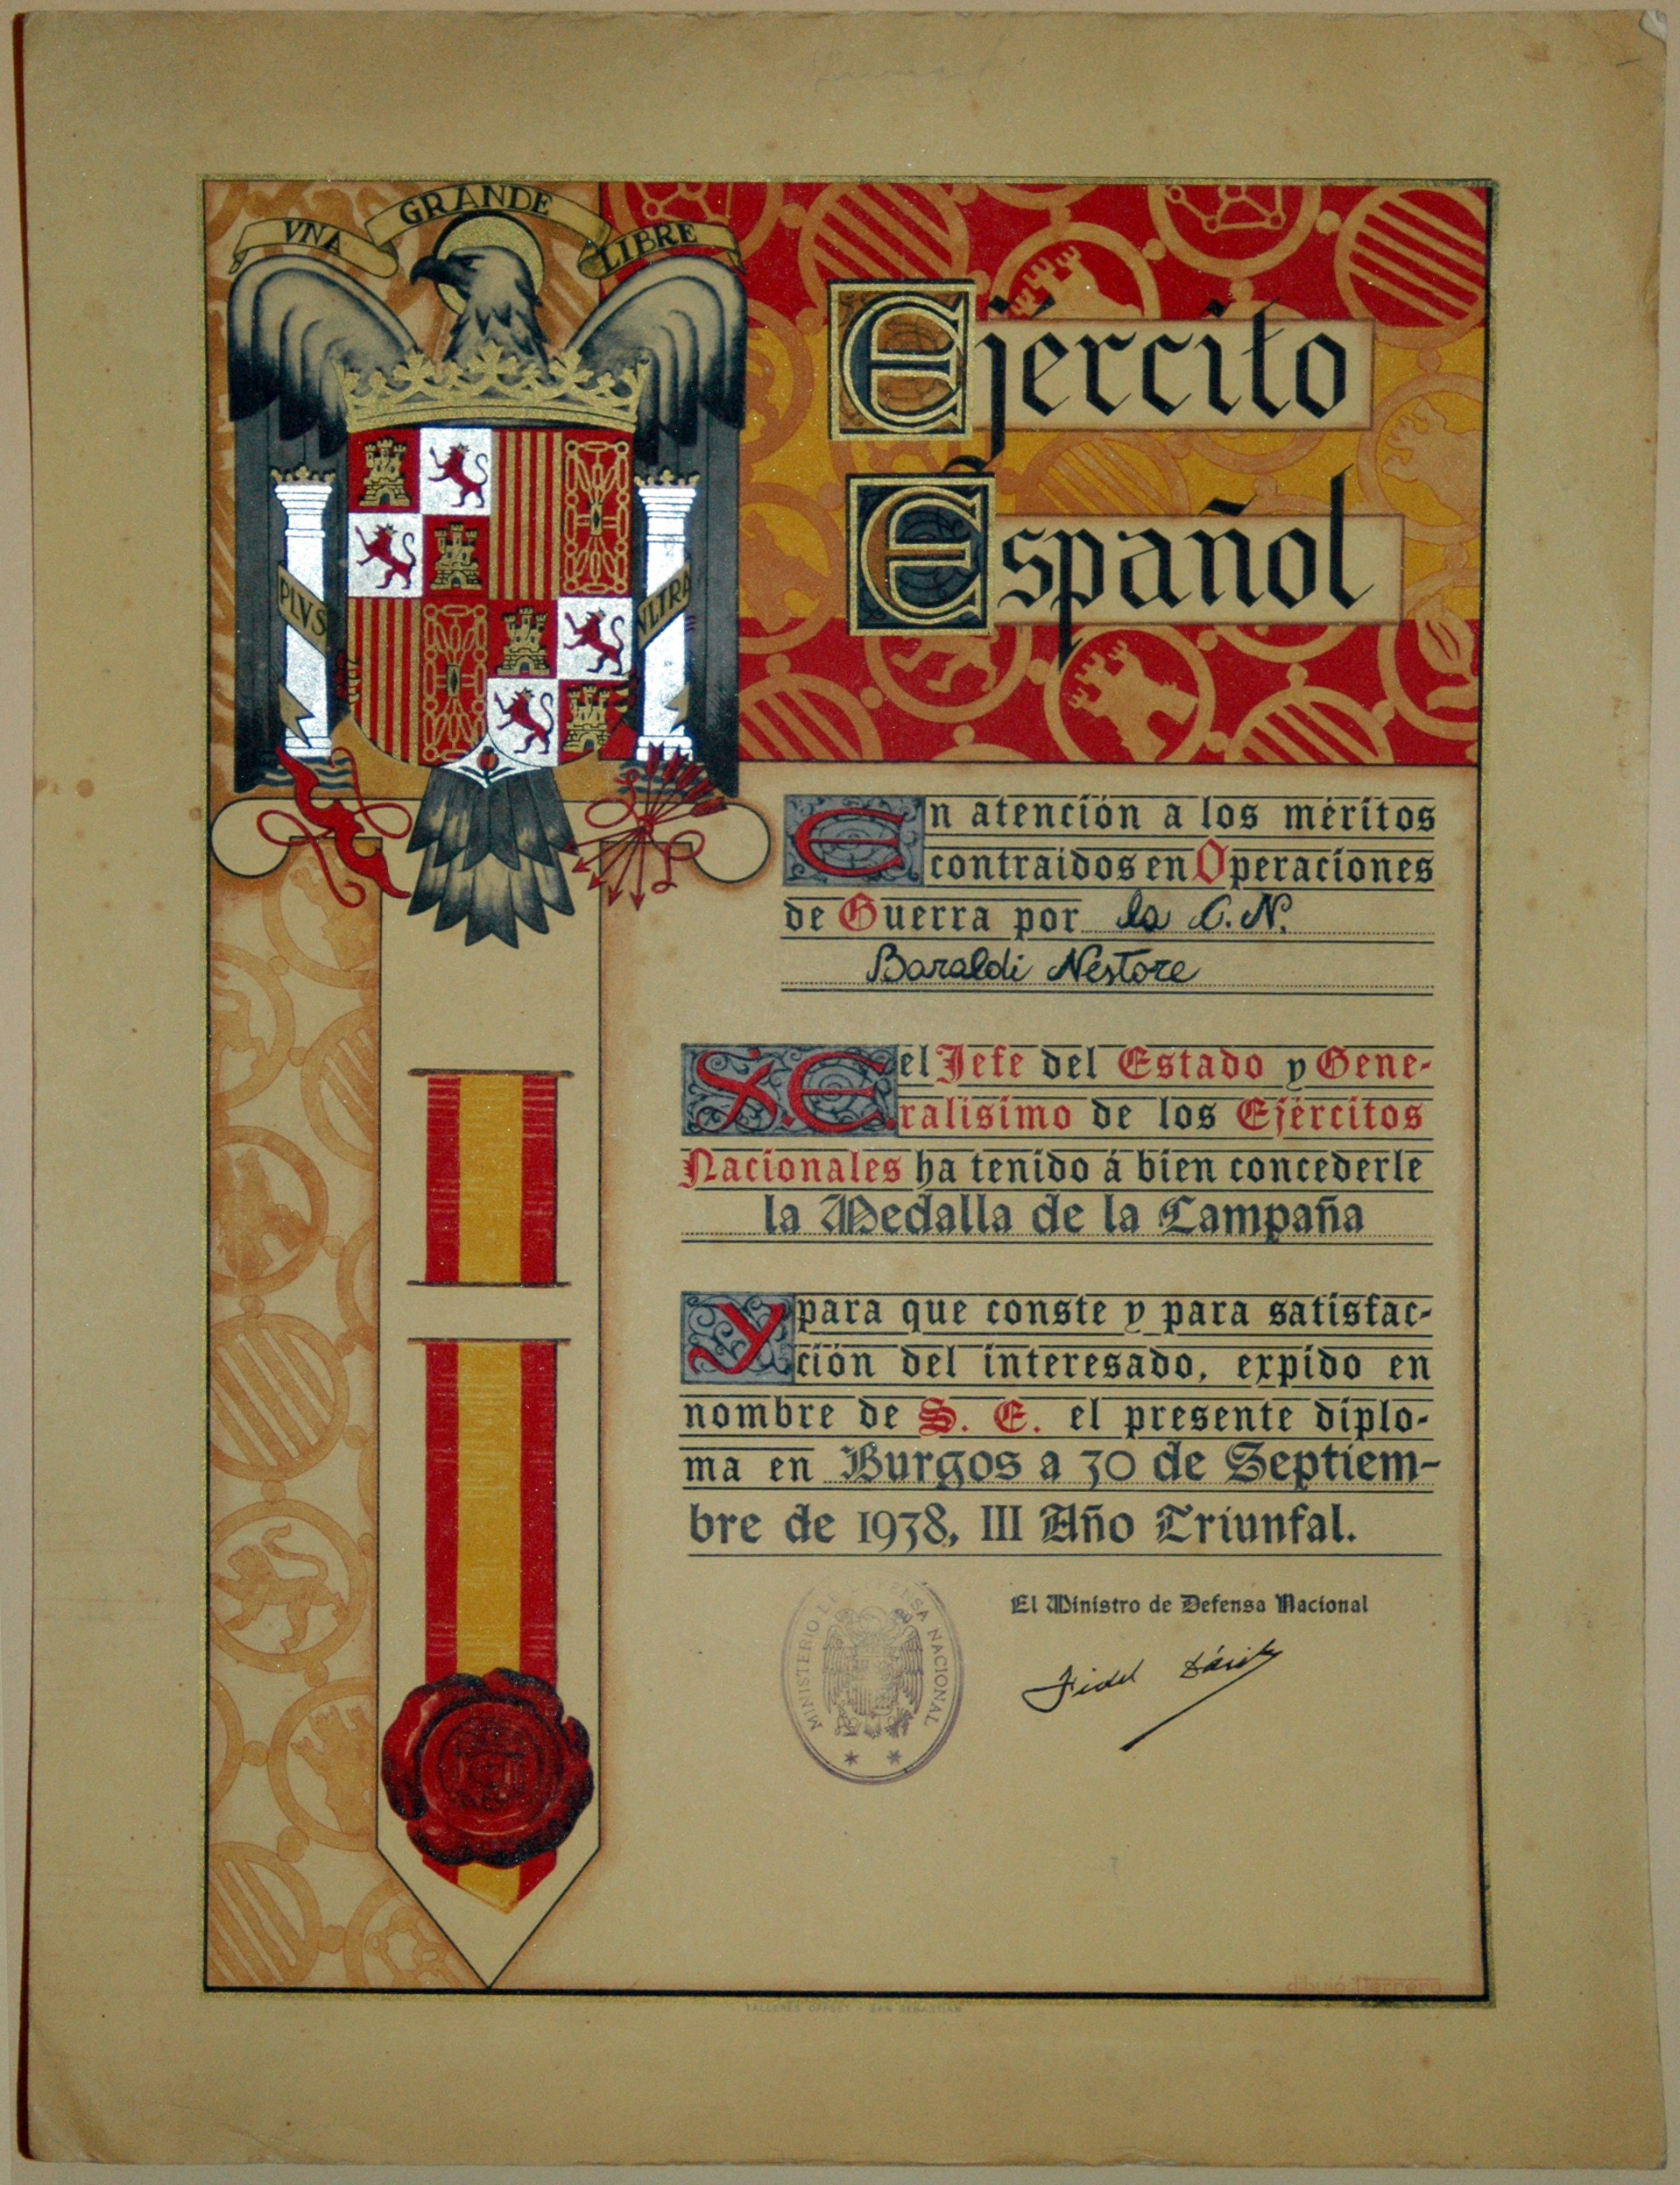 VNA GRANDE LIBRE
Ejercito
Español
PLVS VLTRA
En atención a los méritos
contraidos en Operaciones
de Guerra por la C.N.
Baraldi Nestore
S.E. el Jefe del Estado y Gene-
ralisimo de los Ejércitos
Nacionales ha tenido á bien concederle
la Medalla de la Campaña
Y para que conste y para satisfac-
ción del interesado, expido en
nombre de S. E. el presente diplo-
ma en Burgos a 30 de Septiem-
bre de 1938, III Año Triunfal.
El Ministro de Defensa Nacional
MINISTERIO DE DEFENSA NACIONAL
Fidel Dávila
dibujó Herrero
TALLERES OFFSET - SAN SEBASTIAN